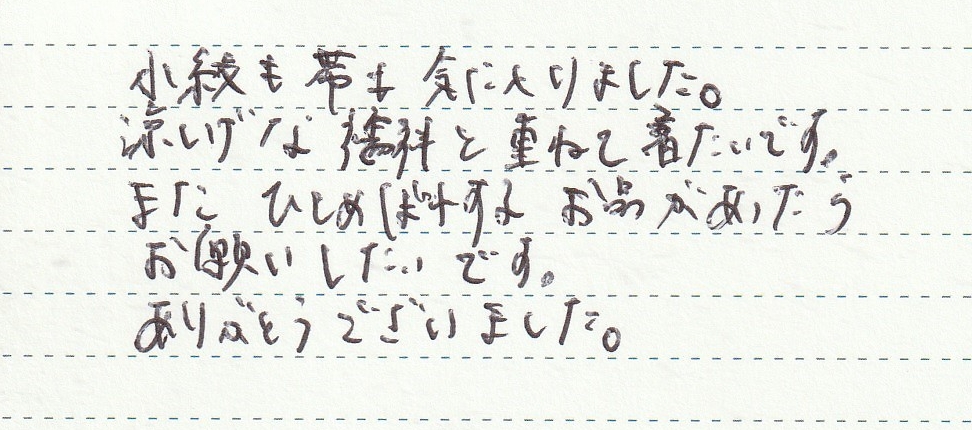 小紋も帯も気に入りました。
涼しげな襦袢と重ねて着たいです。
また ひとめぼれする お品があったら
お願いしたいです。
ありがとうございました。